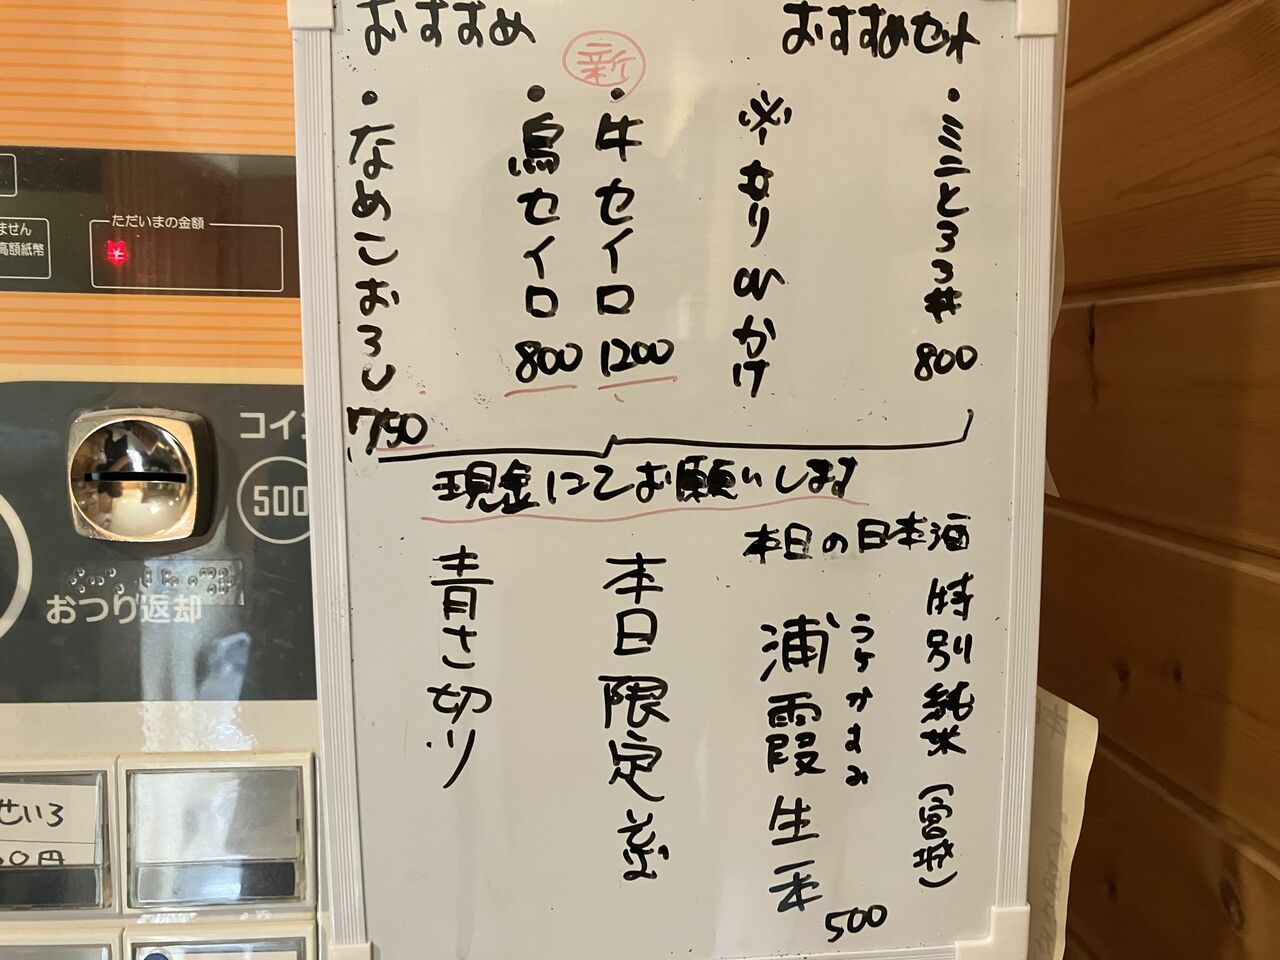 おすすめセット
・ミニとろろ丼 800
※もりorかけ
おすすめ
新
・牛セイロ 1200
・鳥セイロ 800
・なめこおろし 750
現金にてお願いします
本日の日本酒
特別純米(宮城)
うらかすみ
浦霞 生一本 500
本日限定そば
青さ切り
ません
高額紙幣
ただいまの金額
¥
コイン
500
おつり返却
せいろ